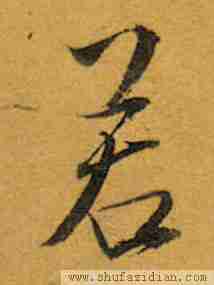 若
www.shufazidian.com